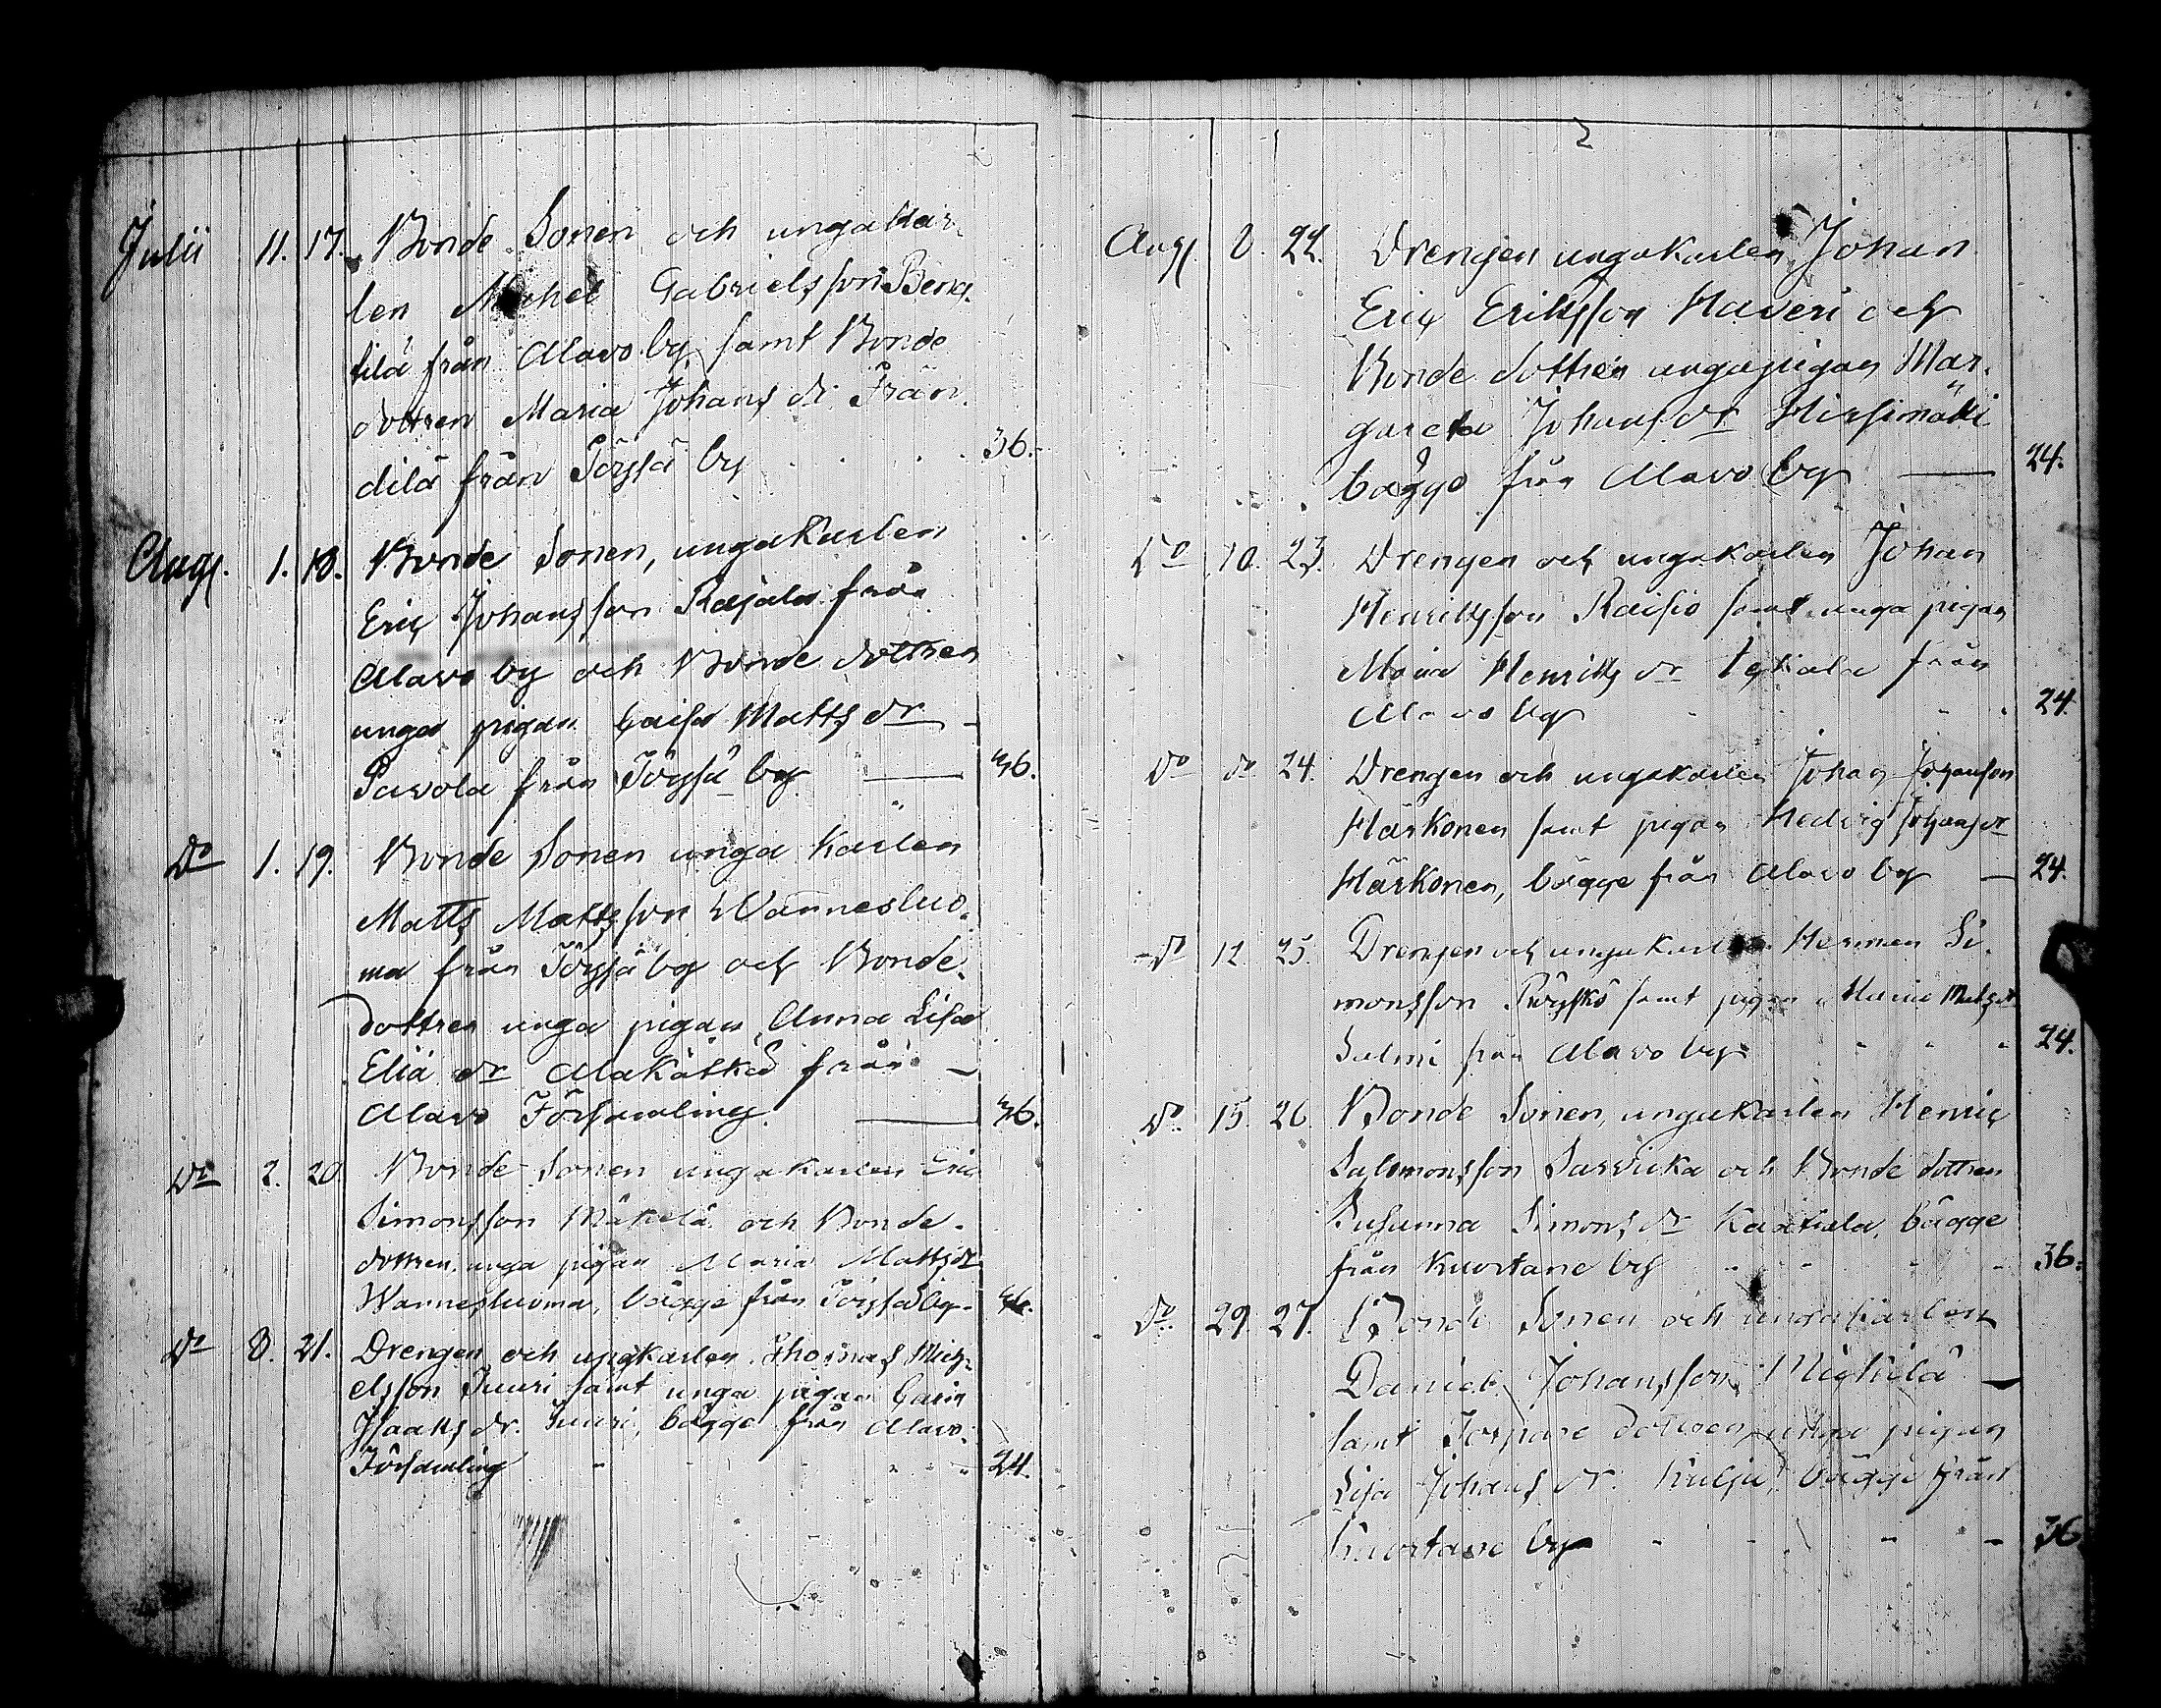 Julii 11. 17. Bonde Sonen och ungakar-
len Michel Gabrielsson Beng-
tilä från Alavo by samt Bonde
dottren Maria Johans dr Frän-
dilä från Töysä by 36.
Aug. 1. 18. Bonde Sonen, ungakarlen
Eric Johansson Rajala från
Alavo by och Bonde dottren
unga pigan Caisa Matts dr
Pavola från Töysä by 36.
Do 1. 19. Bonde Sonen unga karlen
Matts Mattsson Wannesluo-
ma från Töysä by och Bonde-
dottren unga pigan Anna Lisa
Elia dr Alakätkä från
Alavo Församling. 36.
Do 2. 20. Bonde Sonen ungakarlen Eric
Simonsson Mäkelä och Bonde-
dottren unga pigan Maria Matts dr
Wannesluoma, bägge från Töysä by 36.
Do 8. 21. Drengen och ungkarlen Thomas Mich-
elsson Juuri samt unga pigan Carin
Isaaks dr. Juuri, bägge från Alavo
Församling 24.
2
Aug. 8. 22. Drengen ungakarlen Johan
Eric Eriksson Haveri och
Bonde dottren ungapigan Mar-
gareta Johans dr Hirsimäki
bägge från Alavo by 24.
Do 10. 23. Drengen och ungakarlen Johan
Henriksson Raisio samt unga pigan
Maria Henriks dr från
Alavo by 24.
Do do 24. Drengen och ungakarlen Johan Johansson
Härkönen samt pigan Hedvig Johans dr
Härkönen, bägge från Alavo by 24.
Do 12. 25. Drengen och ungakarlen Herman Si-
monsson Röyskö samt pigan Maria Mats dr
Salmi från Alavo by 24.
Do 15. 26. Bonde Sonen, ungakarlen Henric
Salomonsson Sarvicka och Bonde dottren
Susanna Simons dr Kaarela, bägge
från Kuortane by 36.
Do. 29. 27. Bonde Sonen och ungakarlen
Daniel Johansson
samt Torpare dottren, unga pigan
Lisa Johans dr. Kulju, bägge från
Kuortane by 36